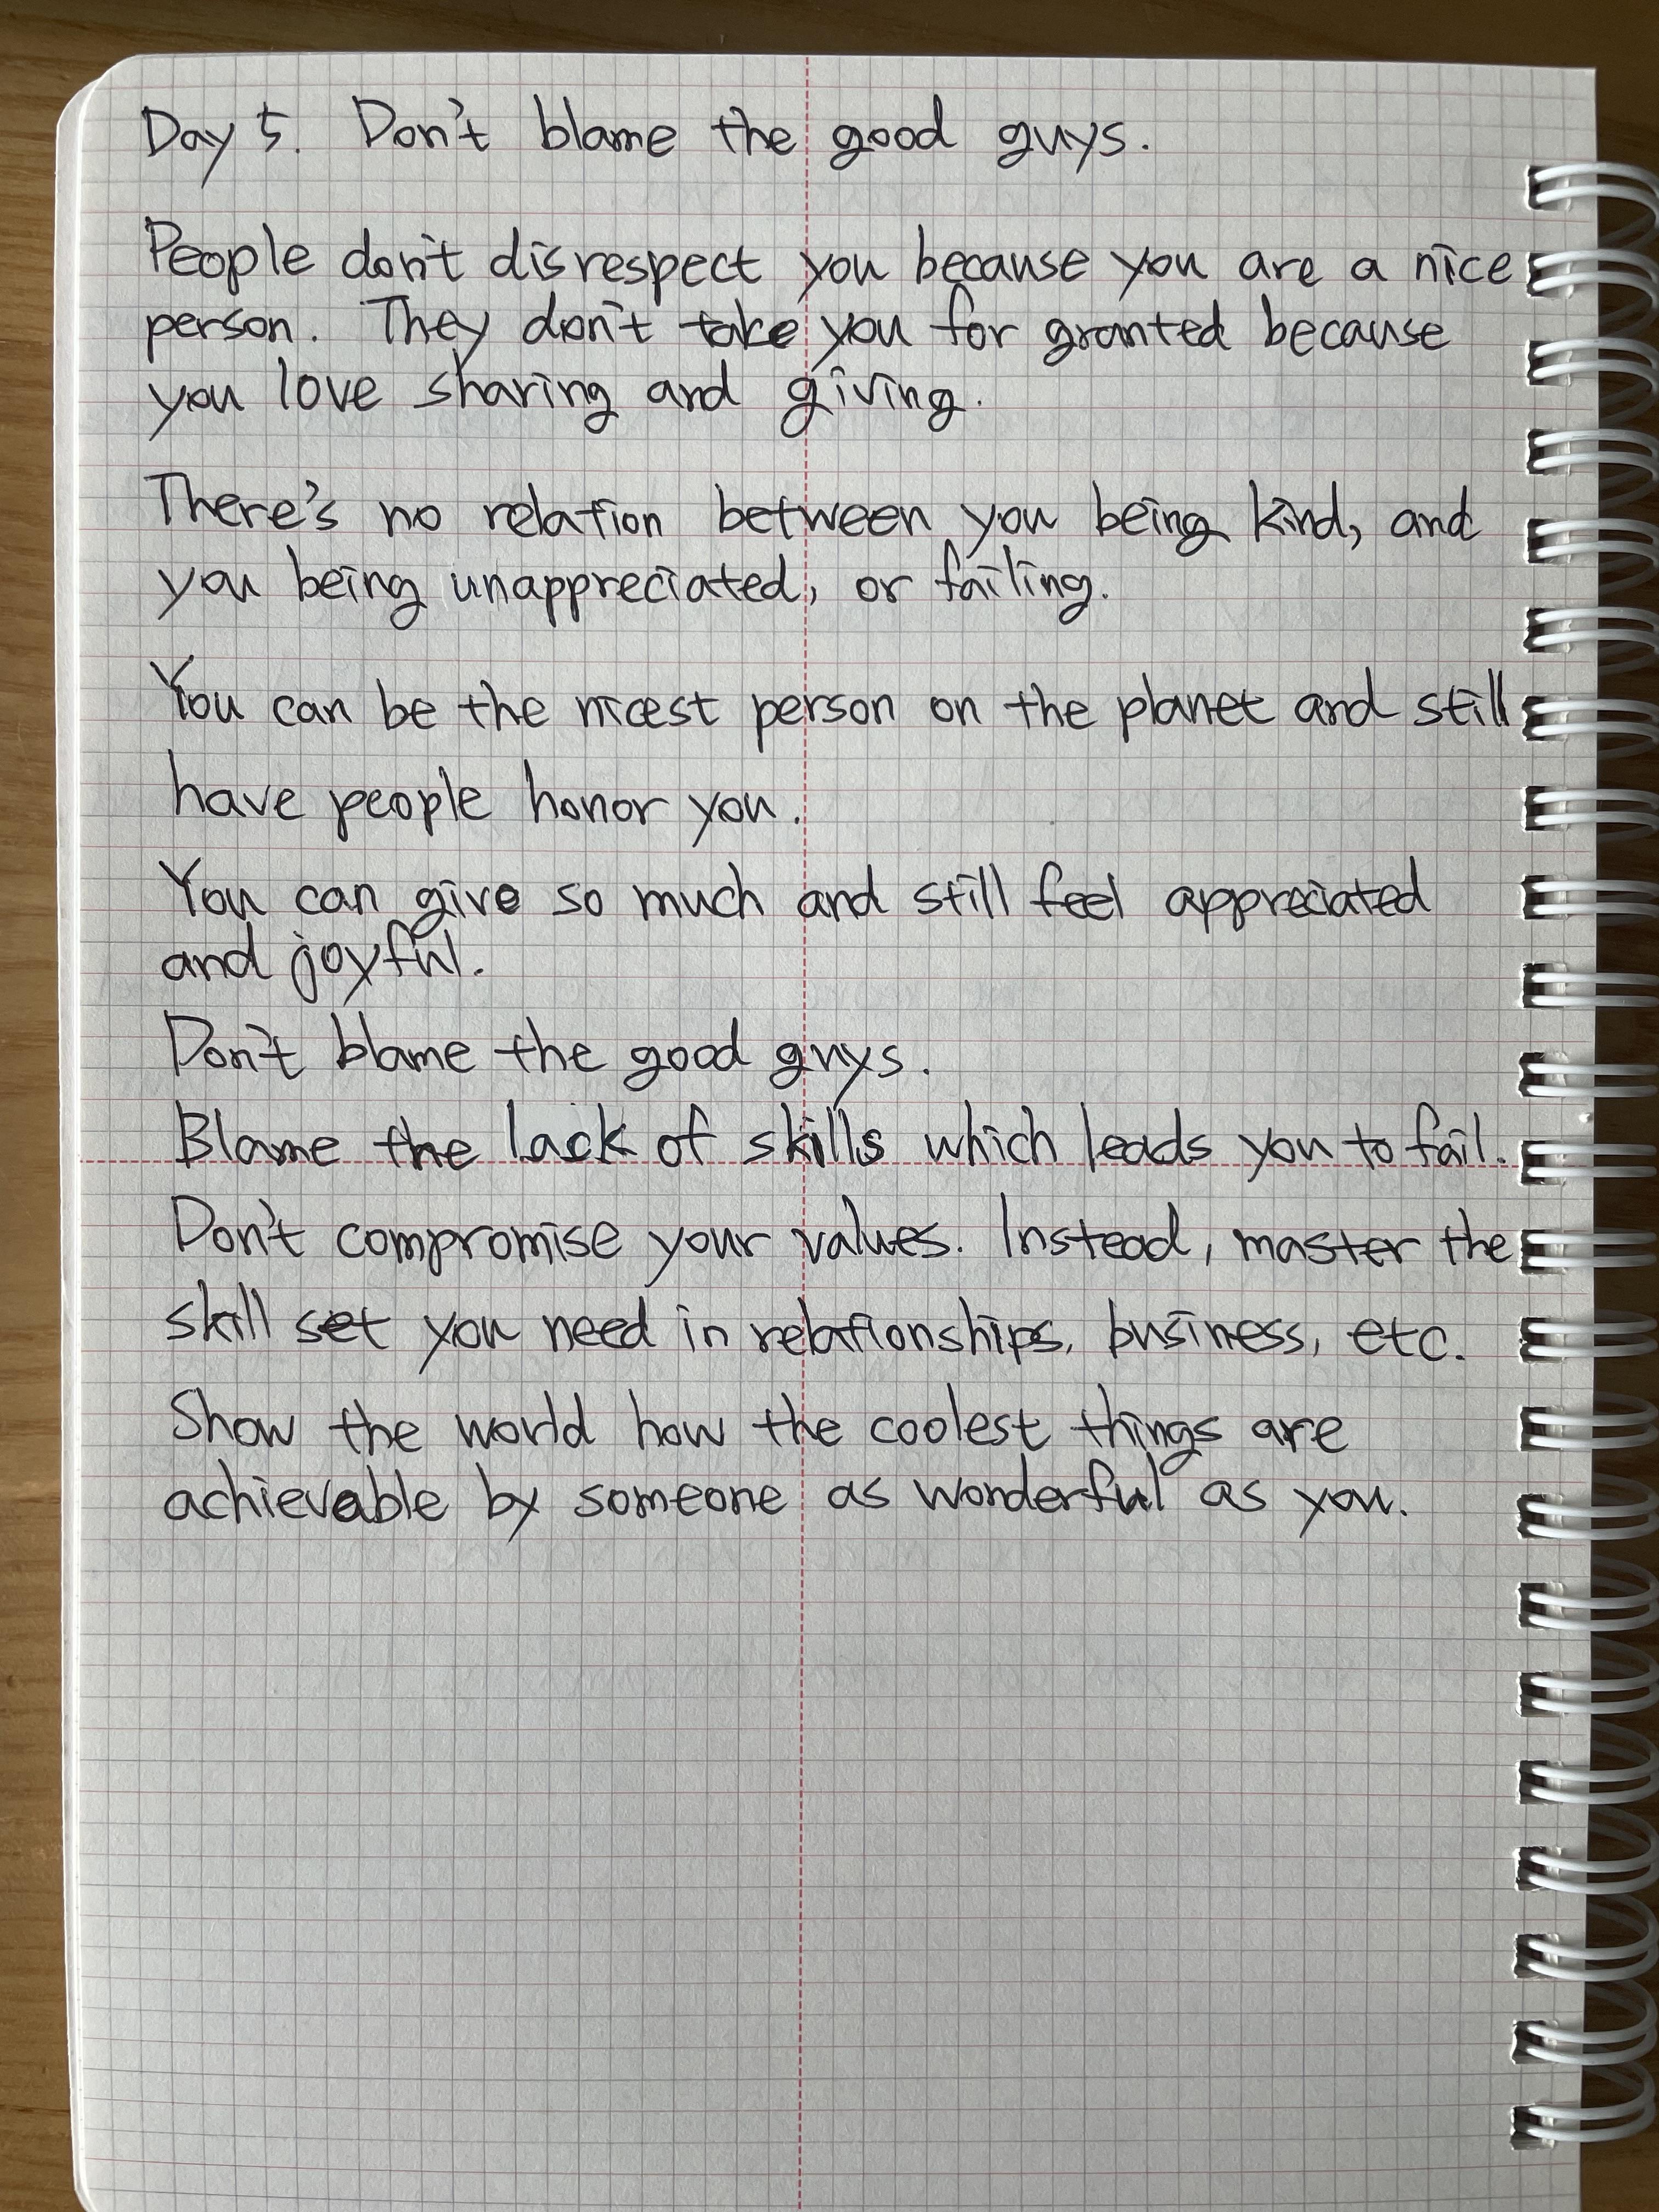 Day 5. Don't blame the good guys.
People don't disrespect you because you are a nice
person. They don't take you for granted because
you love sharing and giving.
There's no relation between you being kind, and
you being unappreciated, or failing.
You can be the nicest person on the planet and still
have people honor you.
You can give so much and still feel appreciated
and joyful.
Don't blame the good guys.
Blame the lack of skills which leads you to fail.
Don't compromise your values. Instead, master the
skill set you need in relationships, business, etc.
Show the world how the coolest things are
achievable by someone as wonderful as you.